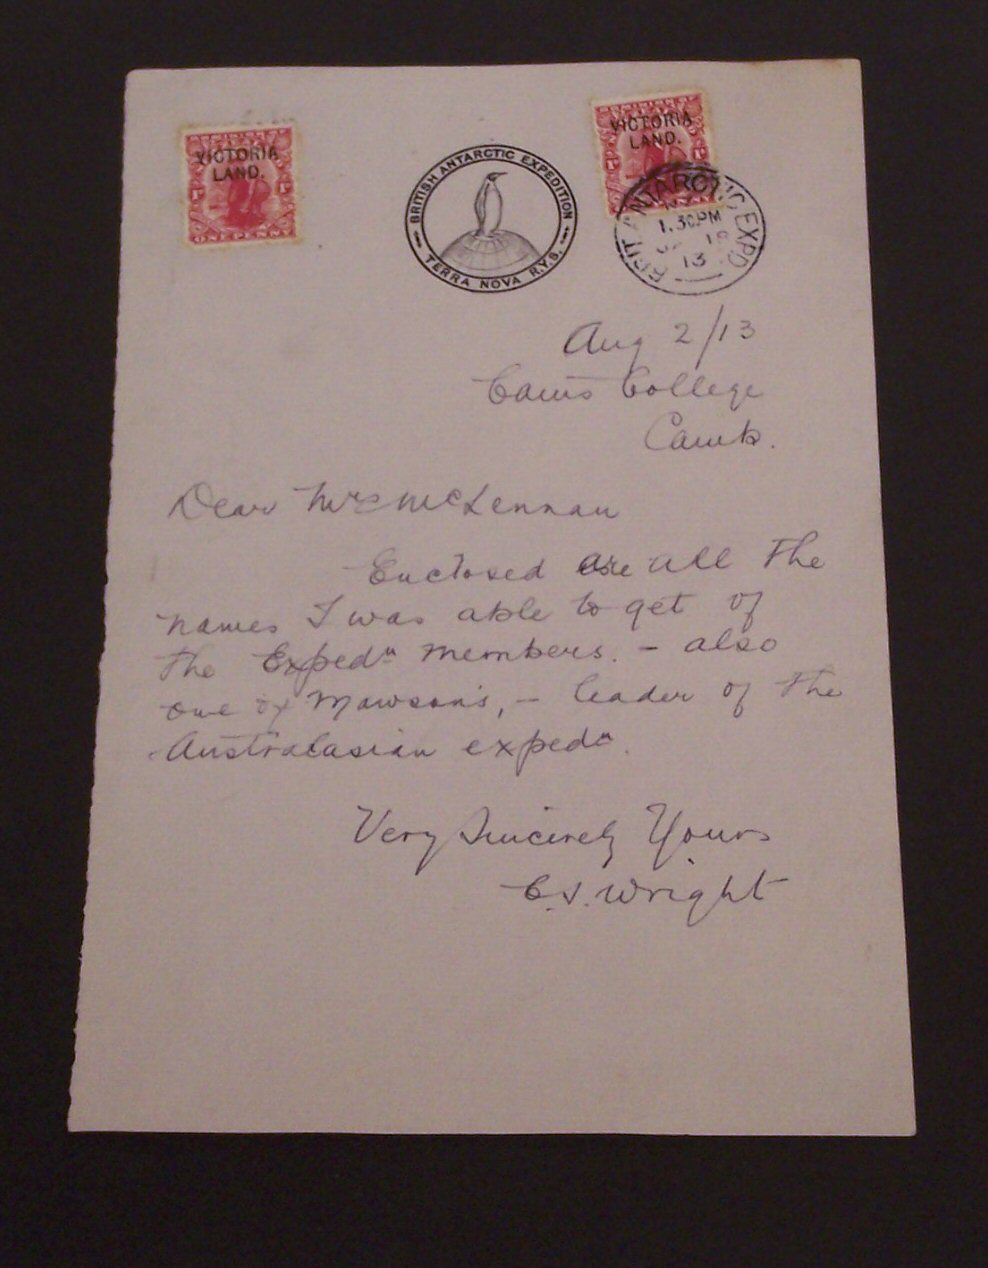 DOMINION OF
VICTORIA
LAND.
1D 1D
ONE PENNY
BRITISH ANTARCTIC EXPEDITION
TERRA NOVA R.Y.S.
DOMINION OF
VICTORIA
LAND.
BRIT. ANTARCTIC EXPD.
1.30PM
JA 18
13
Aug 2/13
Caius College
Camb.
Dear Mrs McLennan
Enclosed are all the
names I was able to get of
the Expedn members. - also
one of Mawson's, - leader of the
Australasian expedn.
Very Sincerely Yours
C.S. Wright